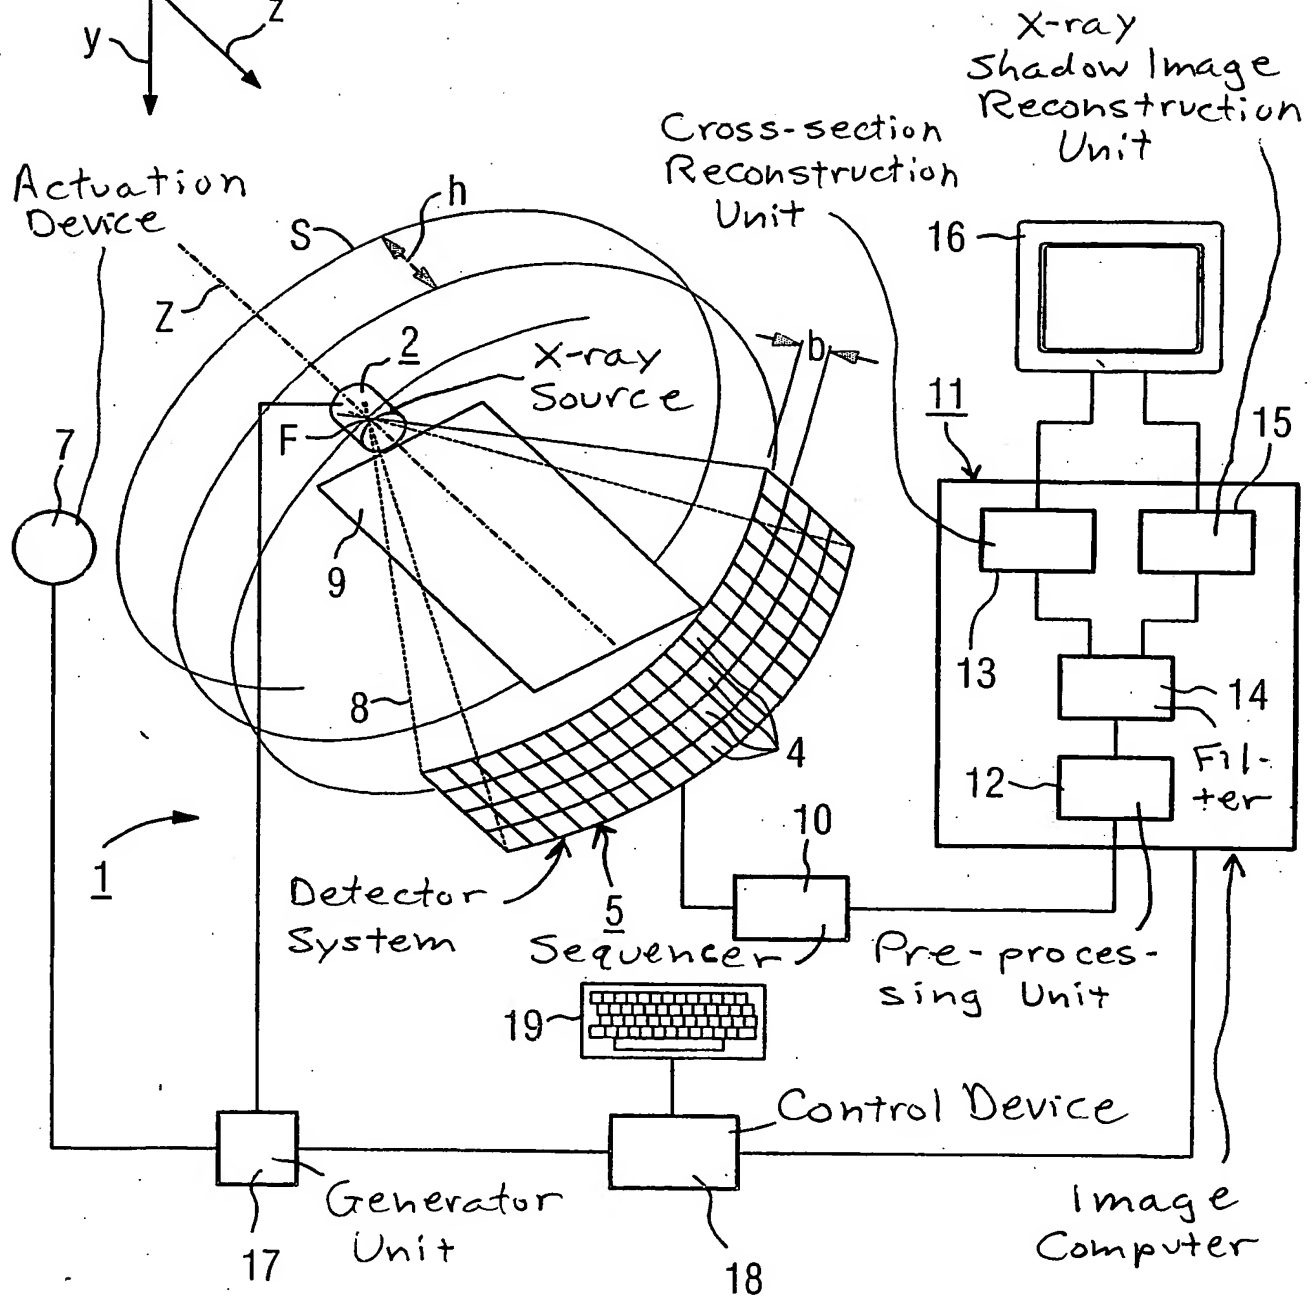 z
y
X-ray
Shadow Image
Reconstruction
Unit
Cross-section
Reconstruction
Unit
Actuation
Device
h
S
16
Z
2
X-ray
Source
b
F
11
15
7
9
13
8
14
4
Fil-
ter
12
10
1
Detector
System
5
Sequencer
Pre-proces-
sing Unit
19
Control Device
Generator
Unit
17
18
Image
Computer